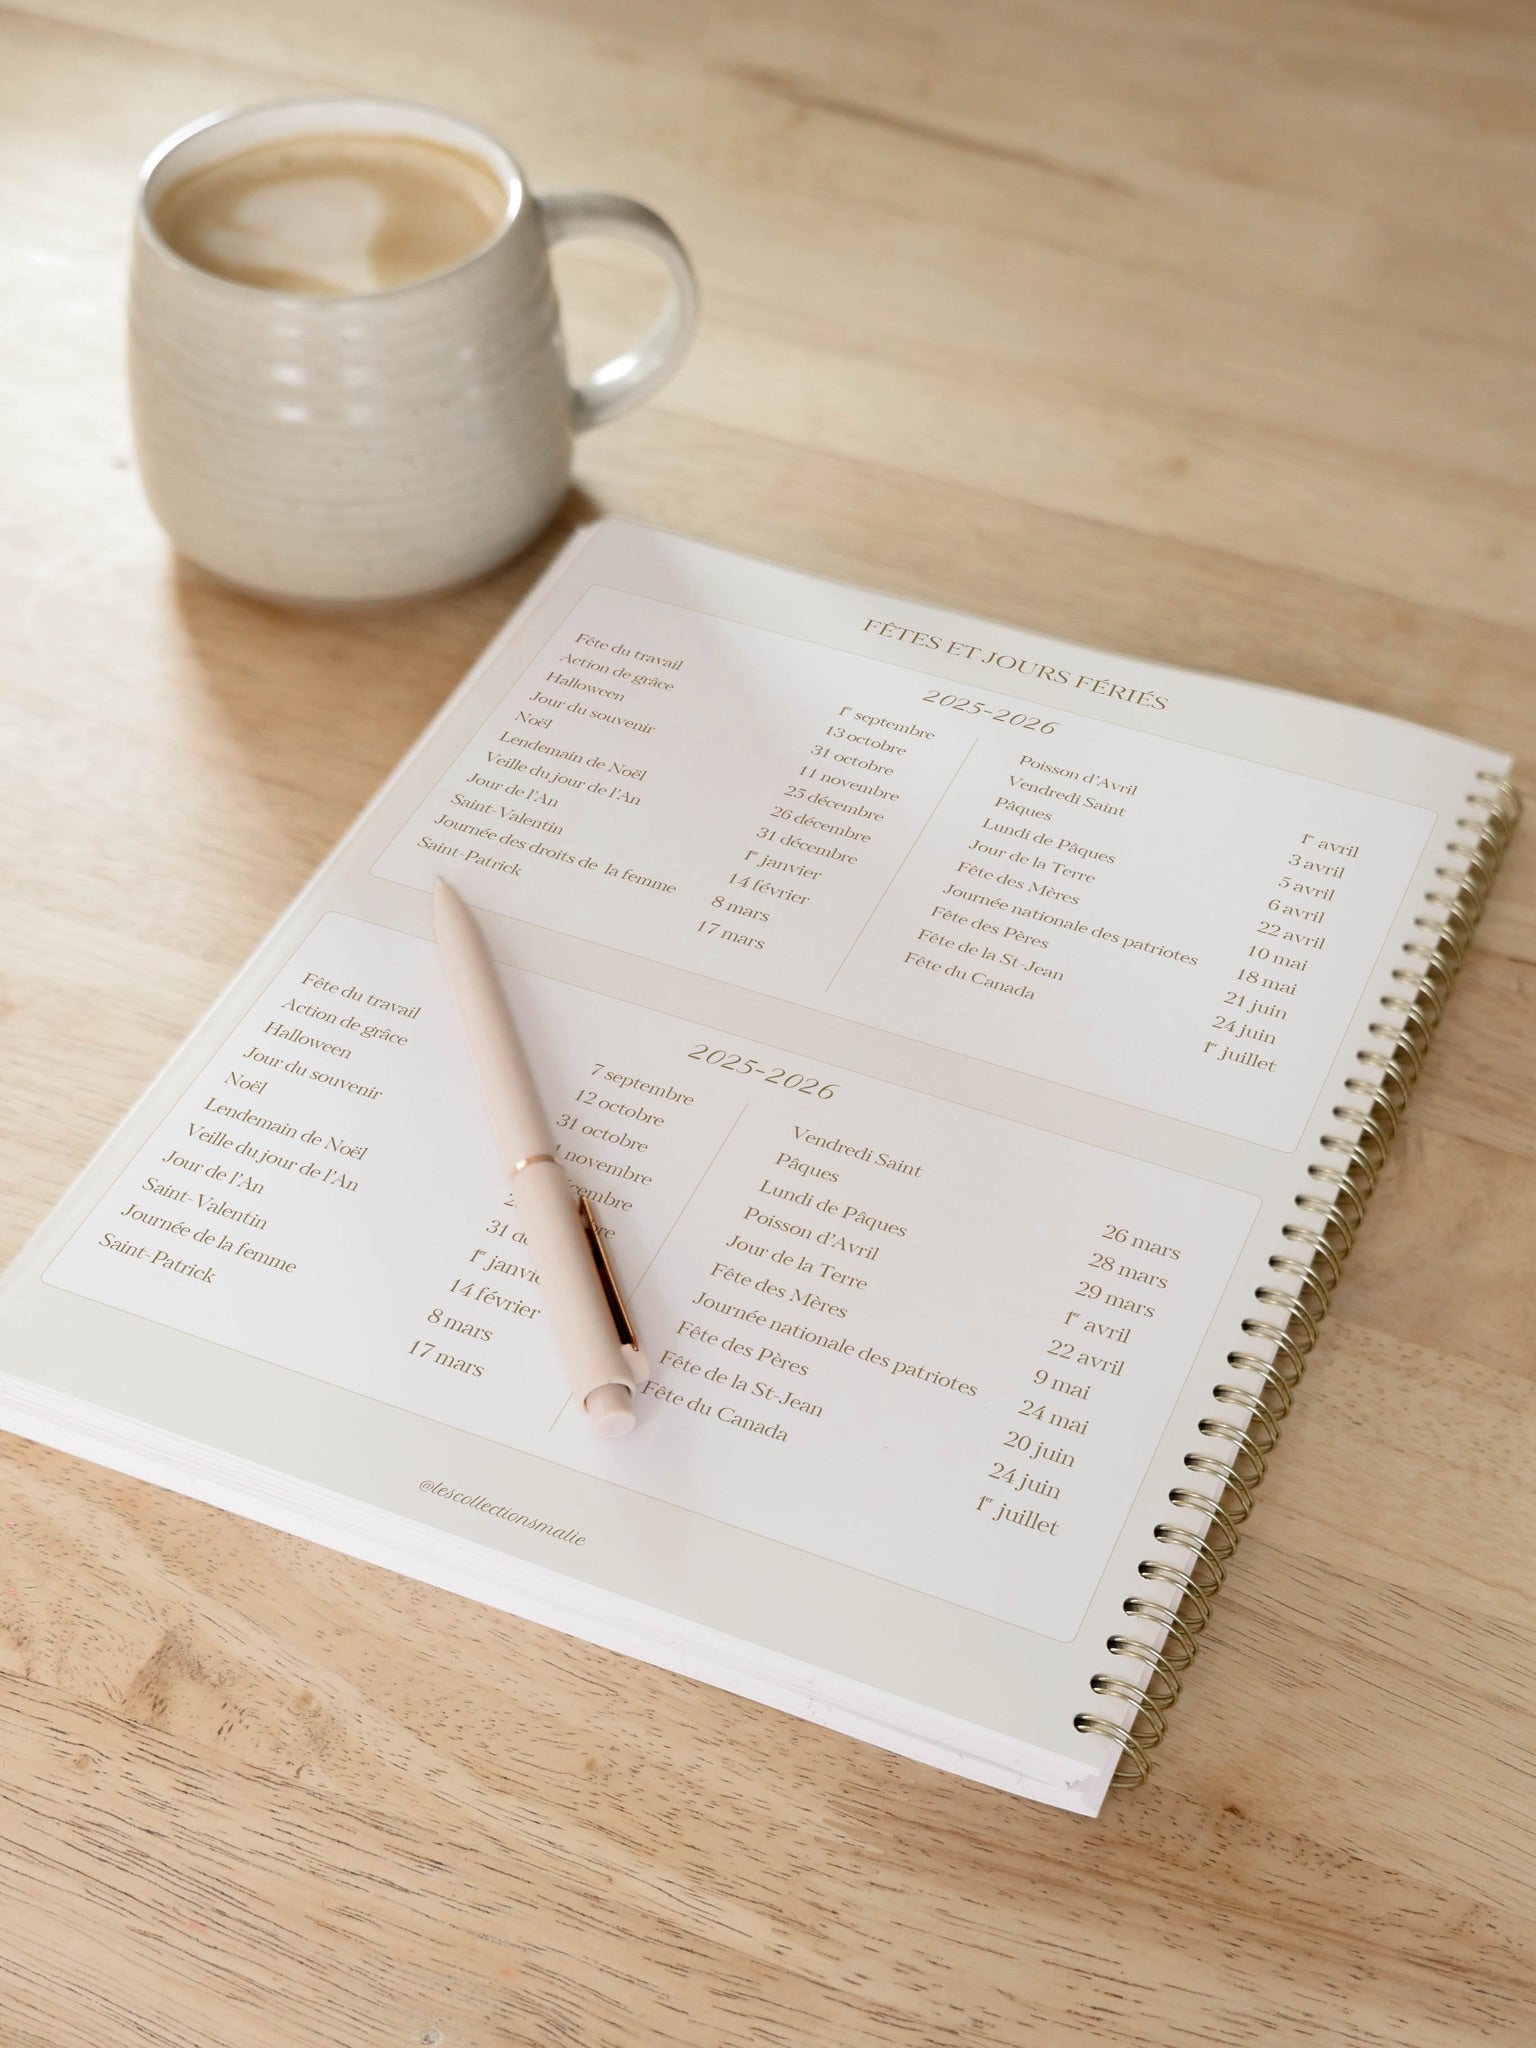 FÊTES ET JOURS FÉRIÉS
2025-2026
Fête du travail 1er septembre
Action de grâce 13 octobre
Halloween 31 octobre
Jour du souvenir 11 novembre
Noël 25 décembre
Lendemain de Noël 26 décembre
Veille du jour de l'An 31 décembre
Jour de l'An 1er janvier
Saint-Valentin 14 février
Journée des droits de la femme 8 mars
Saint-Patrick 17 mars
Poisson d'Avril 1er avril
Vendredi Saint 3 avril
Pâques 5 avril
Lundi de Pâques 6 avril
Jour de la Terre 22 avril
Fête des Mères 10 mai
Journée nationale des patriotes 18 mai
Fête des Pères 21 juin
Fête de la St-Jean 24 juin
Fête du Canada 1er juillet
2025-2026
Fête du travail 7 septembre
Action de grâce 12 octobre
Halloween 31 octobre
Jour du souvenir novembre
Noël
Lendemain de Noël
Veille du jour de l'An 31
Jour de l'An 1er
Saint-Valentin 14 février
Journée de la femme 8 mars
Saint-Patrick 17 mars
Vendredi Saint 26 mars
Pâques 28 mars
Lundi de Pâques 29 mars
Poisson d'Avril 1er avril
Jour de la Terre 22 avril
Fête des Mères 9 mai
Journée nationale des patriotes 24 mai
Fête des Pères 20 juin
Fête de la St-Jean 24 juin
Fête du Canada 1er juillet
@lescollectionsmalie